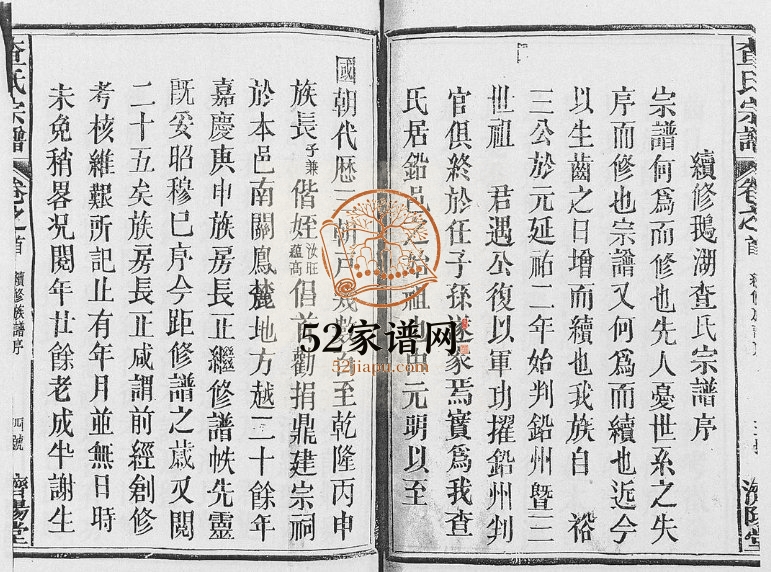 續修鵝湖查氏宗譜序
宗譜何爲而修也先人憂世系之失
序而修也宗譜又何爲而續也近今
以生齒之日增而續也我族自 裕
三公於元延祐二年始判鉛州暨三
世祖 君遇公復以軍功擢鉛州判
官俱終於任子孫遂家焉實爲我查
氏居鉛邑之始祖也由元明以至
國朝代歷三朝戶幾數百至乾隆丙申
族長子兼偕姪汝旺蘊高倡首勸捐鼎建宗祠
於本邑南關鳳麓地方越二十餘年
嘉慶庚申族房長正繼修譜帙先靈
既妥昭穆已序今距修譜之歲又閱
二十五矣族房長正咸謂前經創修
考核維艱所記止有年月並無日時
未免稍畧况閱年廿餘老成半謝生
查氏宗譜 卷之首 續修族譜序 四號 濟陽堂
查氏宗譜 卷之首 濟陽堂
52家谱网
52jiapu.com